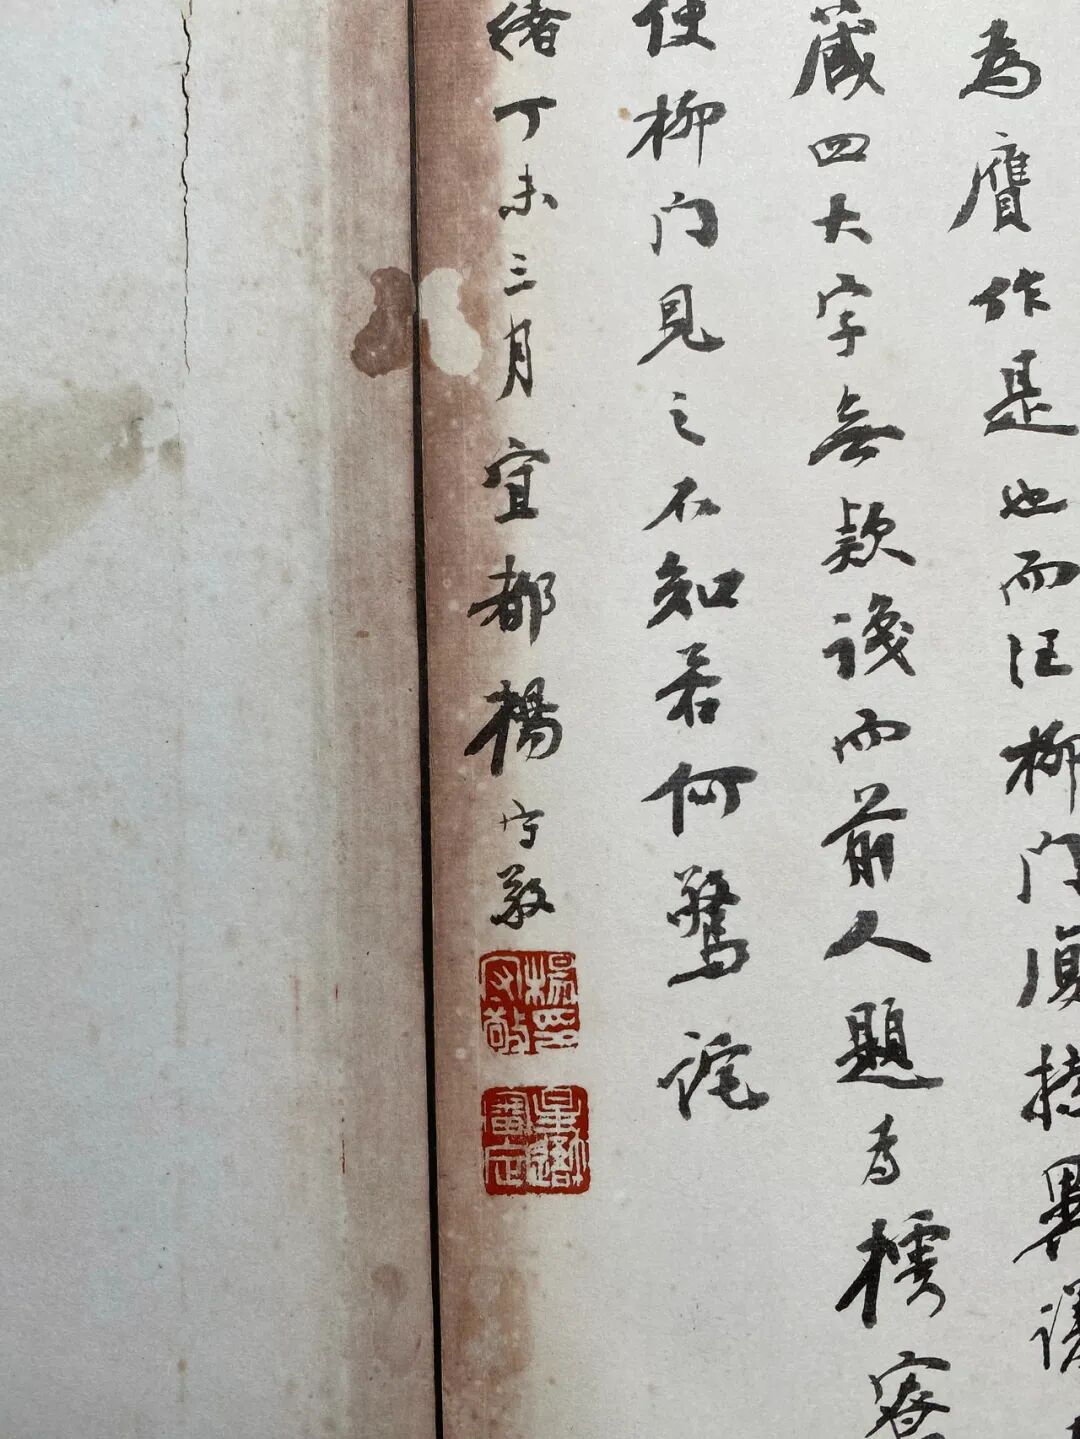 為贋作是也而汪柳门
藏四大字無款識而前人題為
使柳门見之不知若何驚詫
緒丁未三月宜都楊守敬
楊守敬印
星吾審定